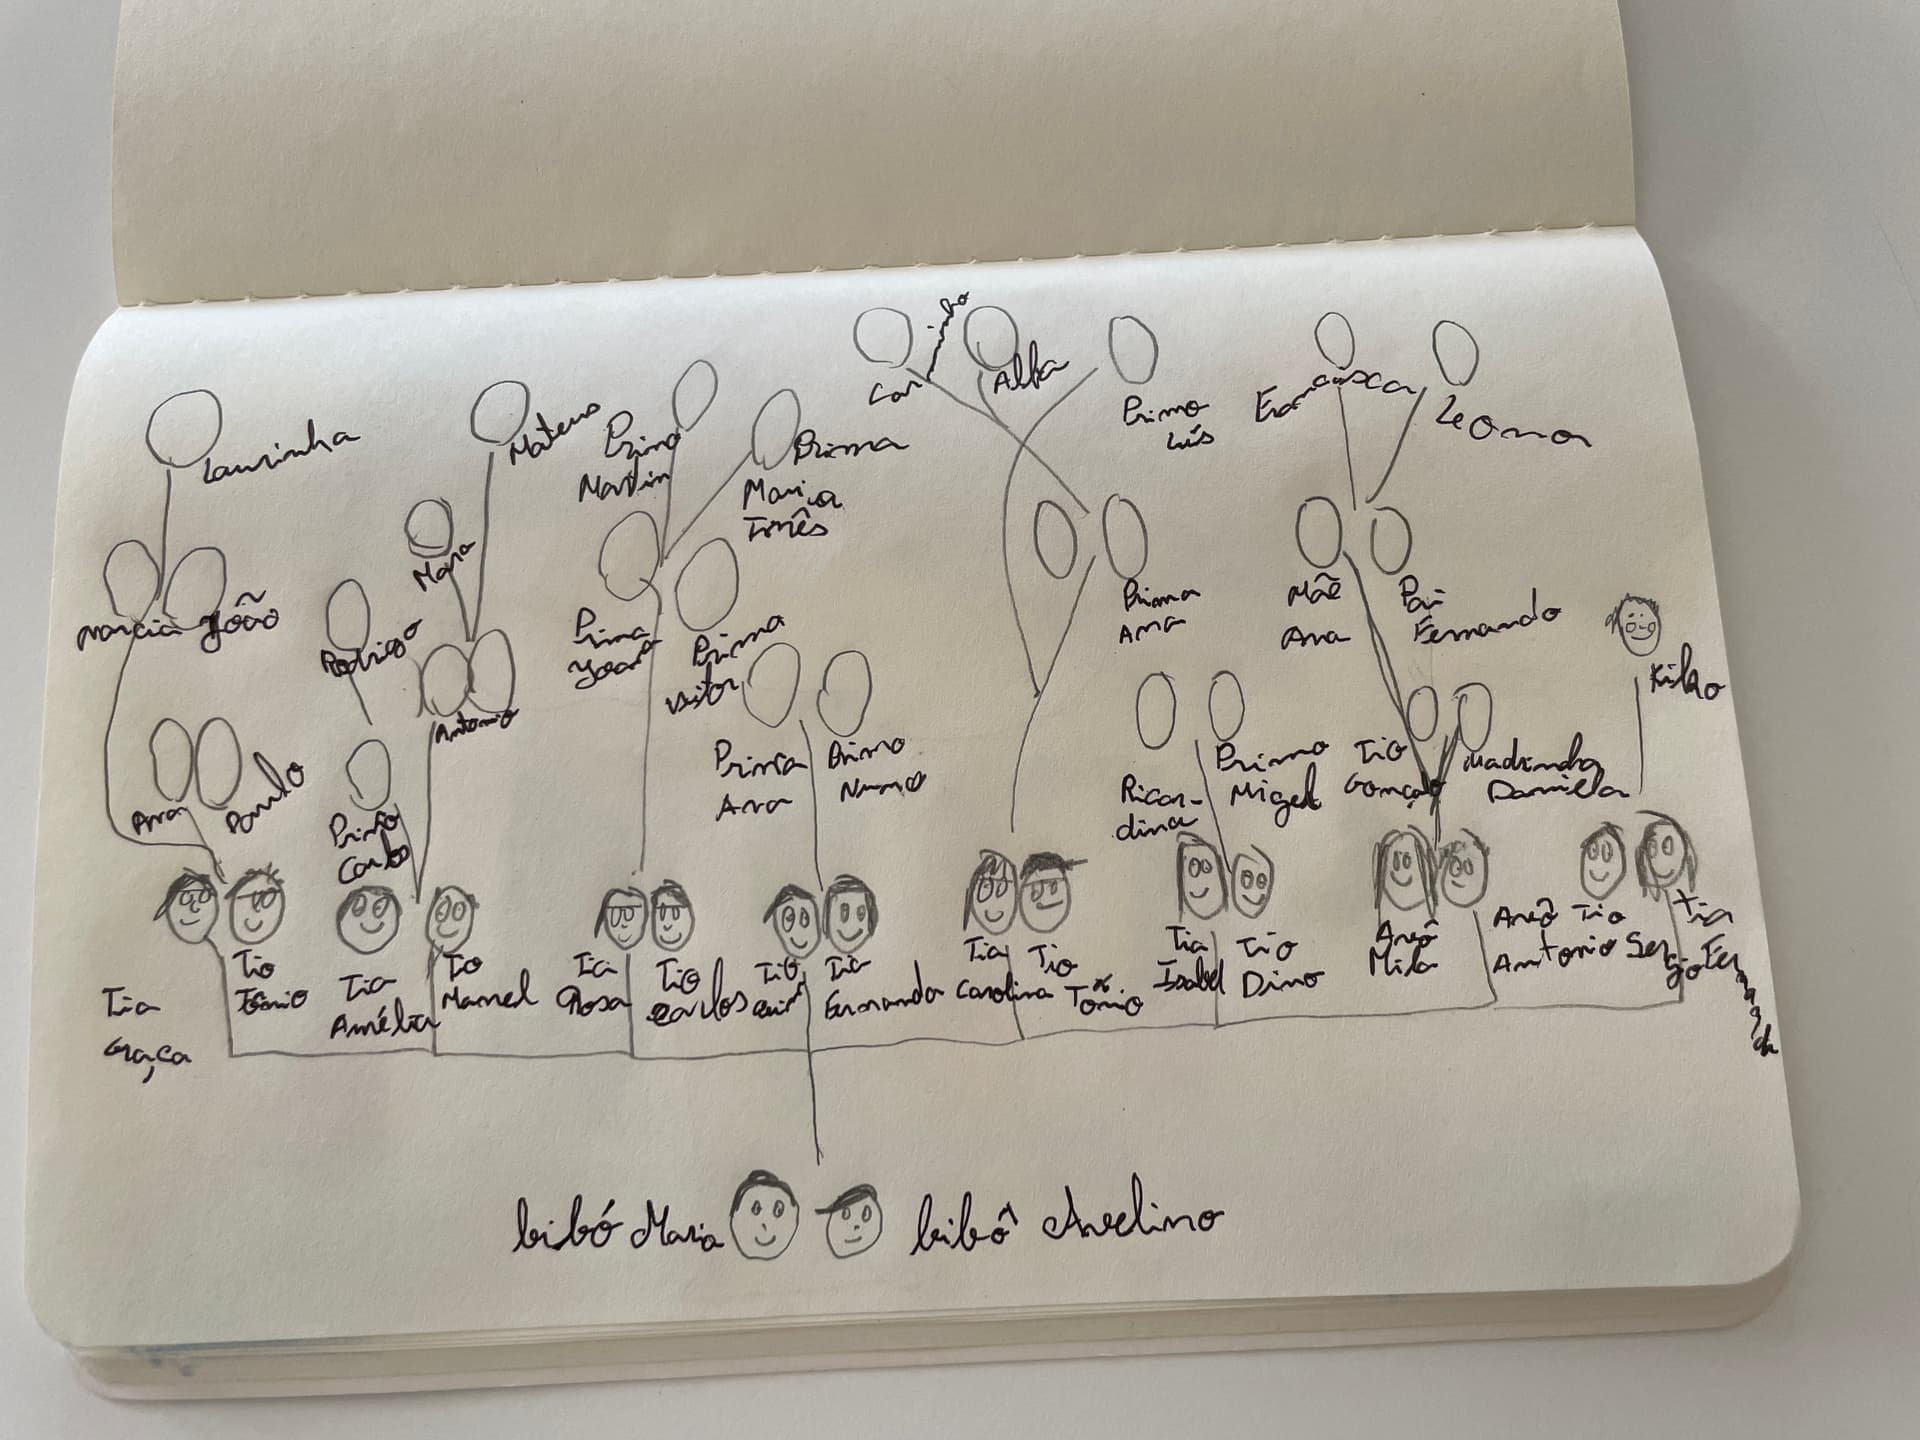 Carminho
Alba
Primo
Luís
Francisca
Leonor
Laurinha
Mateus
Primo
Martin
Prima
Maria
Inês
Maria
Marcia João
Rodrigo
Antonio
Prima
Joana
Primo
Vitor
Prima
Ana
Mãe
Ana
Pai
Fernando
Kiko
Ana
Paulo
Primo
Carlos
Prima
Ana
Primo
Nuno
Ricar-
dina
Primo
Migel
Tio
Gonçalo
Madrinha
Daniela
Tia
Graça
Tio
Tónio
Tia
Amélia
Tio
Manuel
Tia
Rosa
Tio
Carlos
Tio
Tia
Fernanda
Tia
Carolina
Tio
Tónio
Tia
Isabel
Tio
Dino
Avó
Mila
Avô
Antonio
Tio
Sergio
Tia
Fernanda
bibó Maria
bibô Avelino